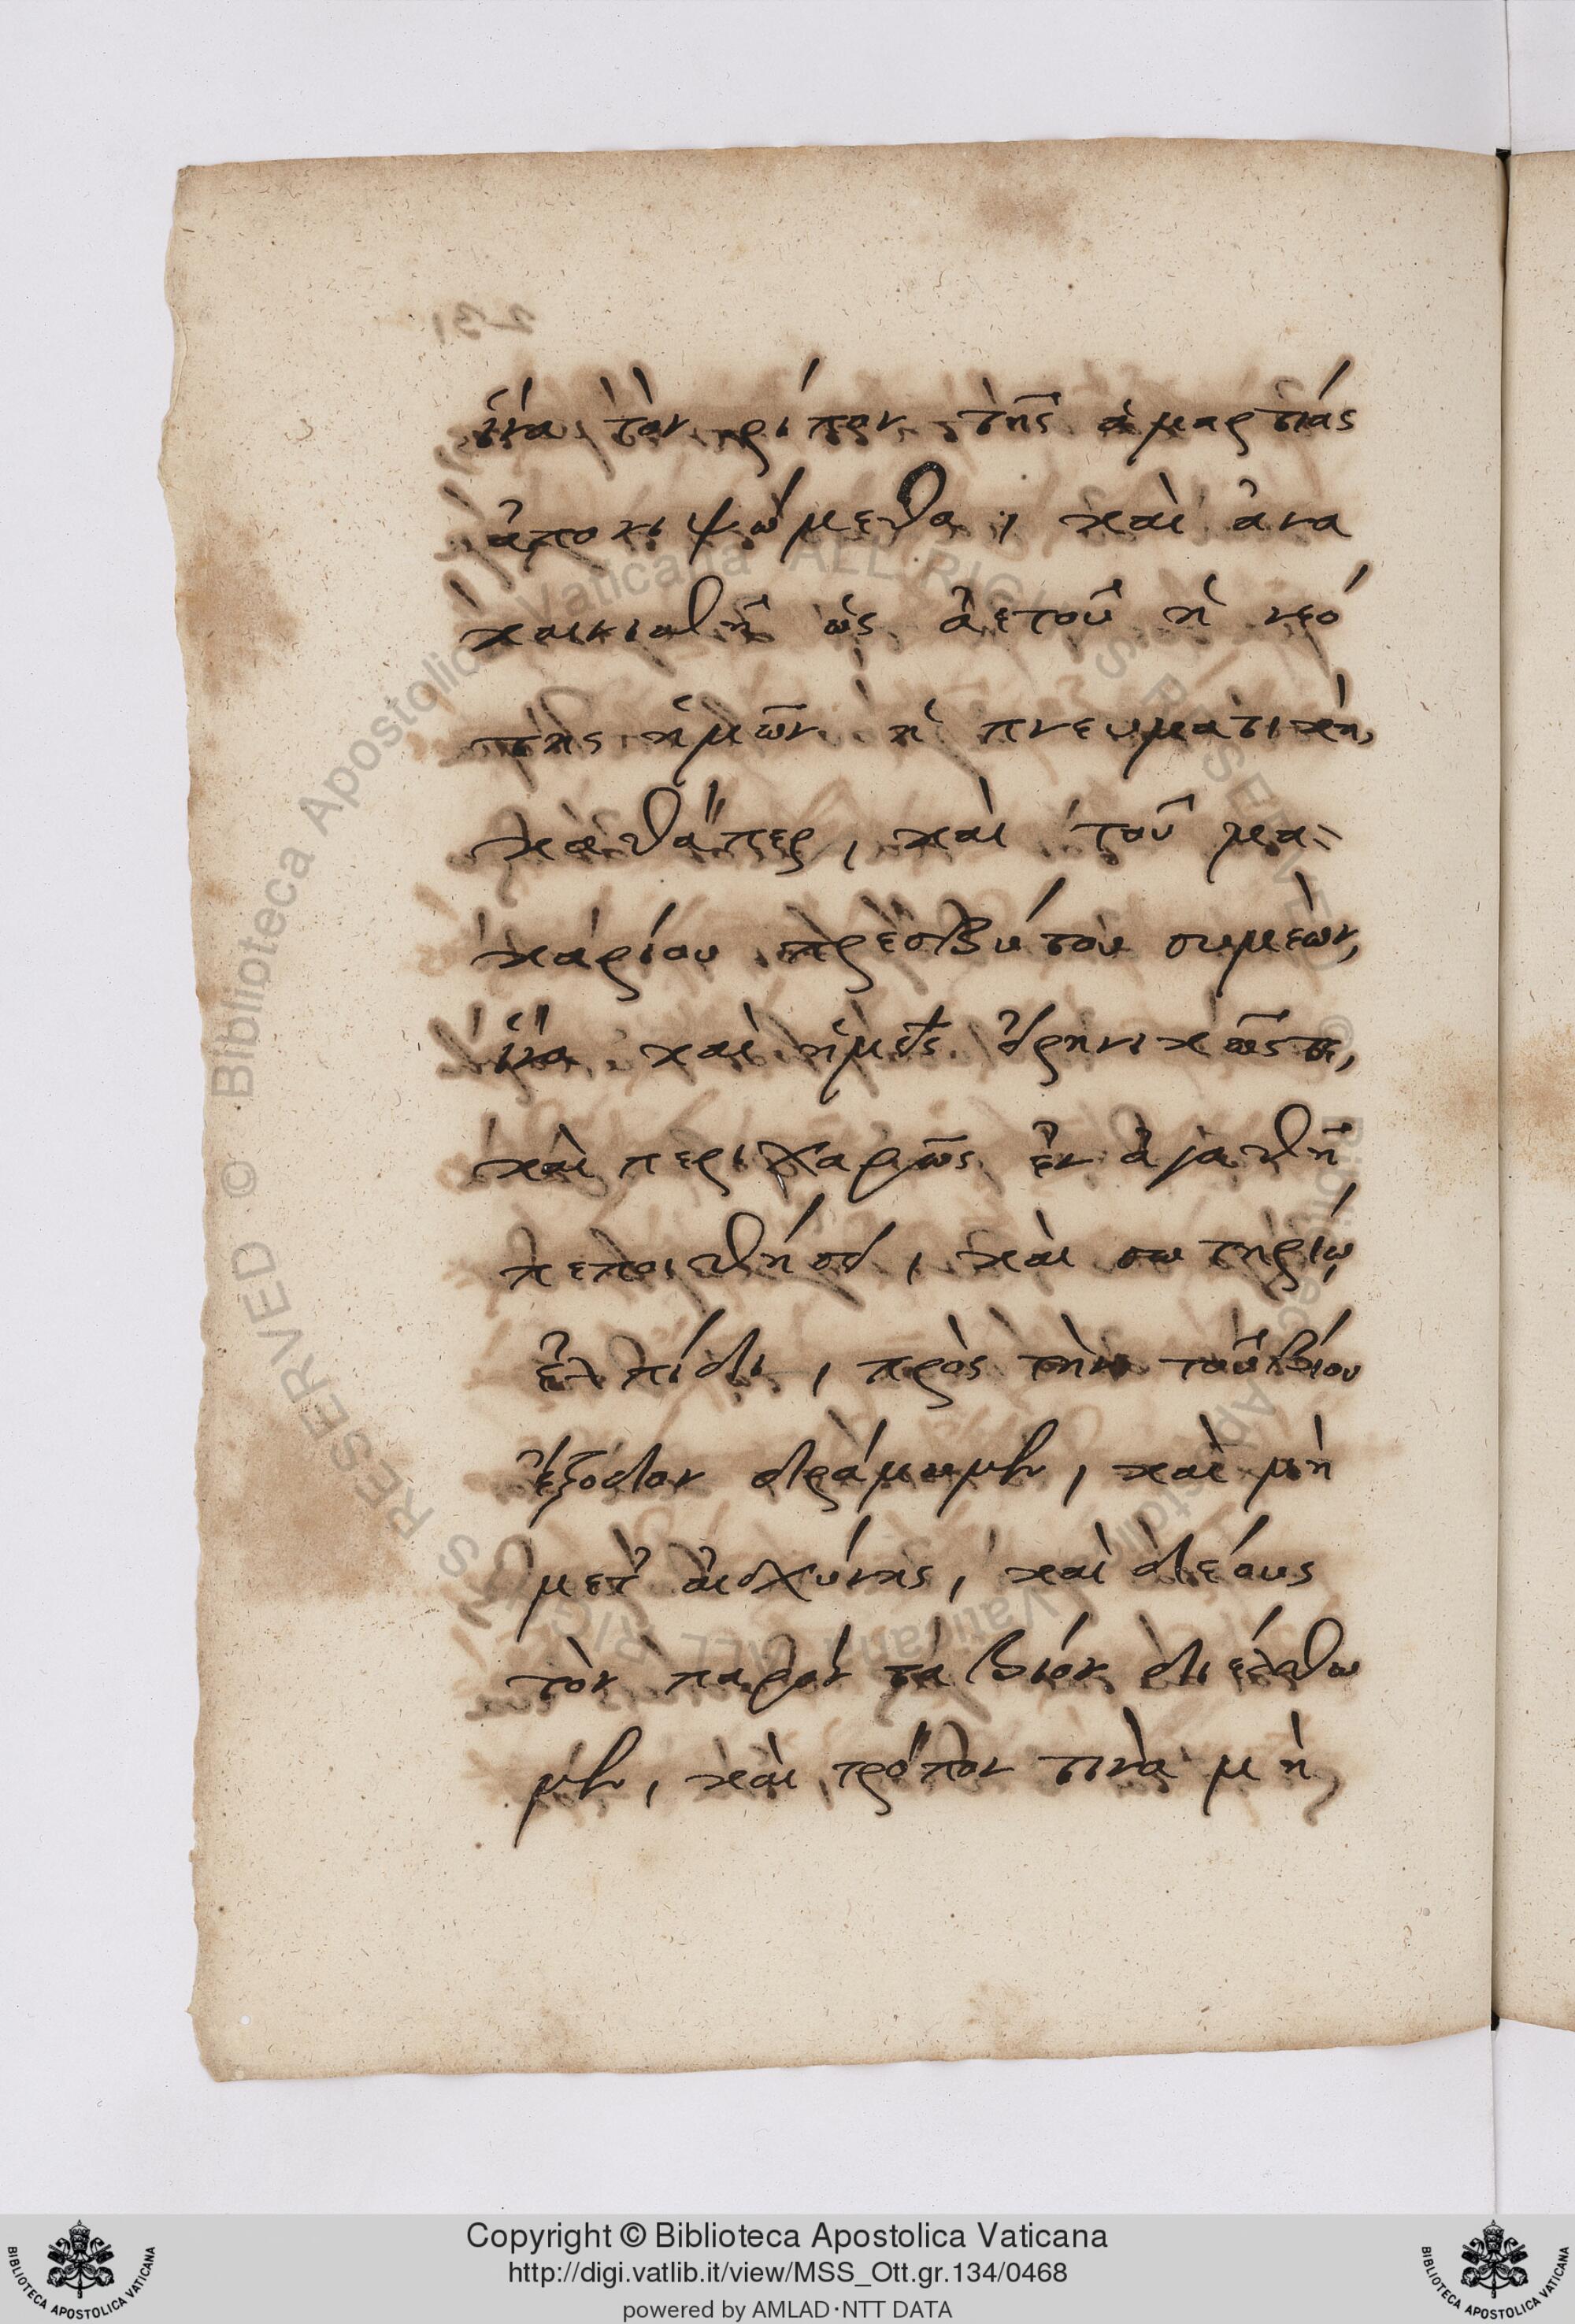 ἵνα τὸν ρίπον τῆς ἁμαρτίας
ἀπονιψώμεθα, καὶ ἀνα
καινισθῆ ὡς ἀετοῦ ἡ νεό
της ἡμῶν ἡ πνευματικὴ,
καθάπερ, καὶ τοῦ μα-
καρίου πρεσβύτου συμεὼν,
ἵνα καὶ ἡμεῖς
καὶ περιχαρῶς ἐν ἀγαθῆ
πεποιθήσει, καὶ σωτηρίω
ἐλπίδι, πρὸς τὴν τοῦ βίου
ἔξοδον δράμωμεν, καὶ μὴ
μετ' αἰσχύνης, καὶ δέους
τὸν παρόντα βίον διέλθω
μεν, καὶ τρόπον τινὰ μὴ
231
Biblioteca Apostolica Vaticana ALL RIGHTS RESERVED ©
Copyright © Biblioteca Apostolica Vaticana
http://digi.vatlib.it/view/MSS_Ott.gr.134/0468
powered by AMLAD·NTT DATA
BIBLIOTECA APOSTOLICA VATICANA
BIBLIOTECA APOSTOLICA VATICANA